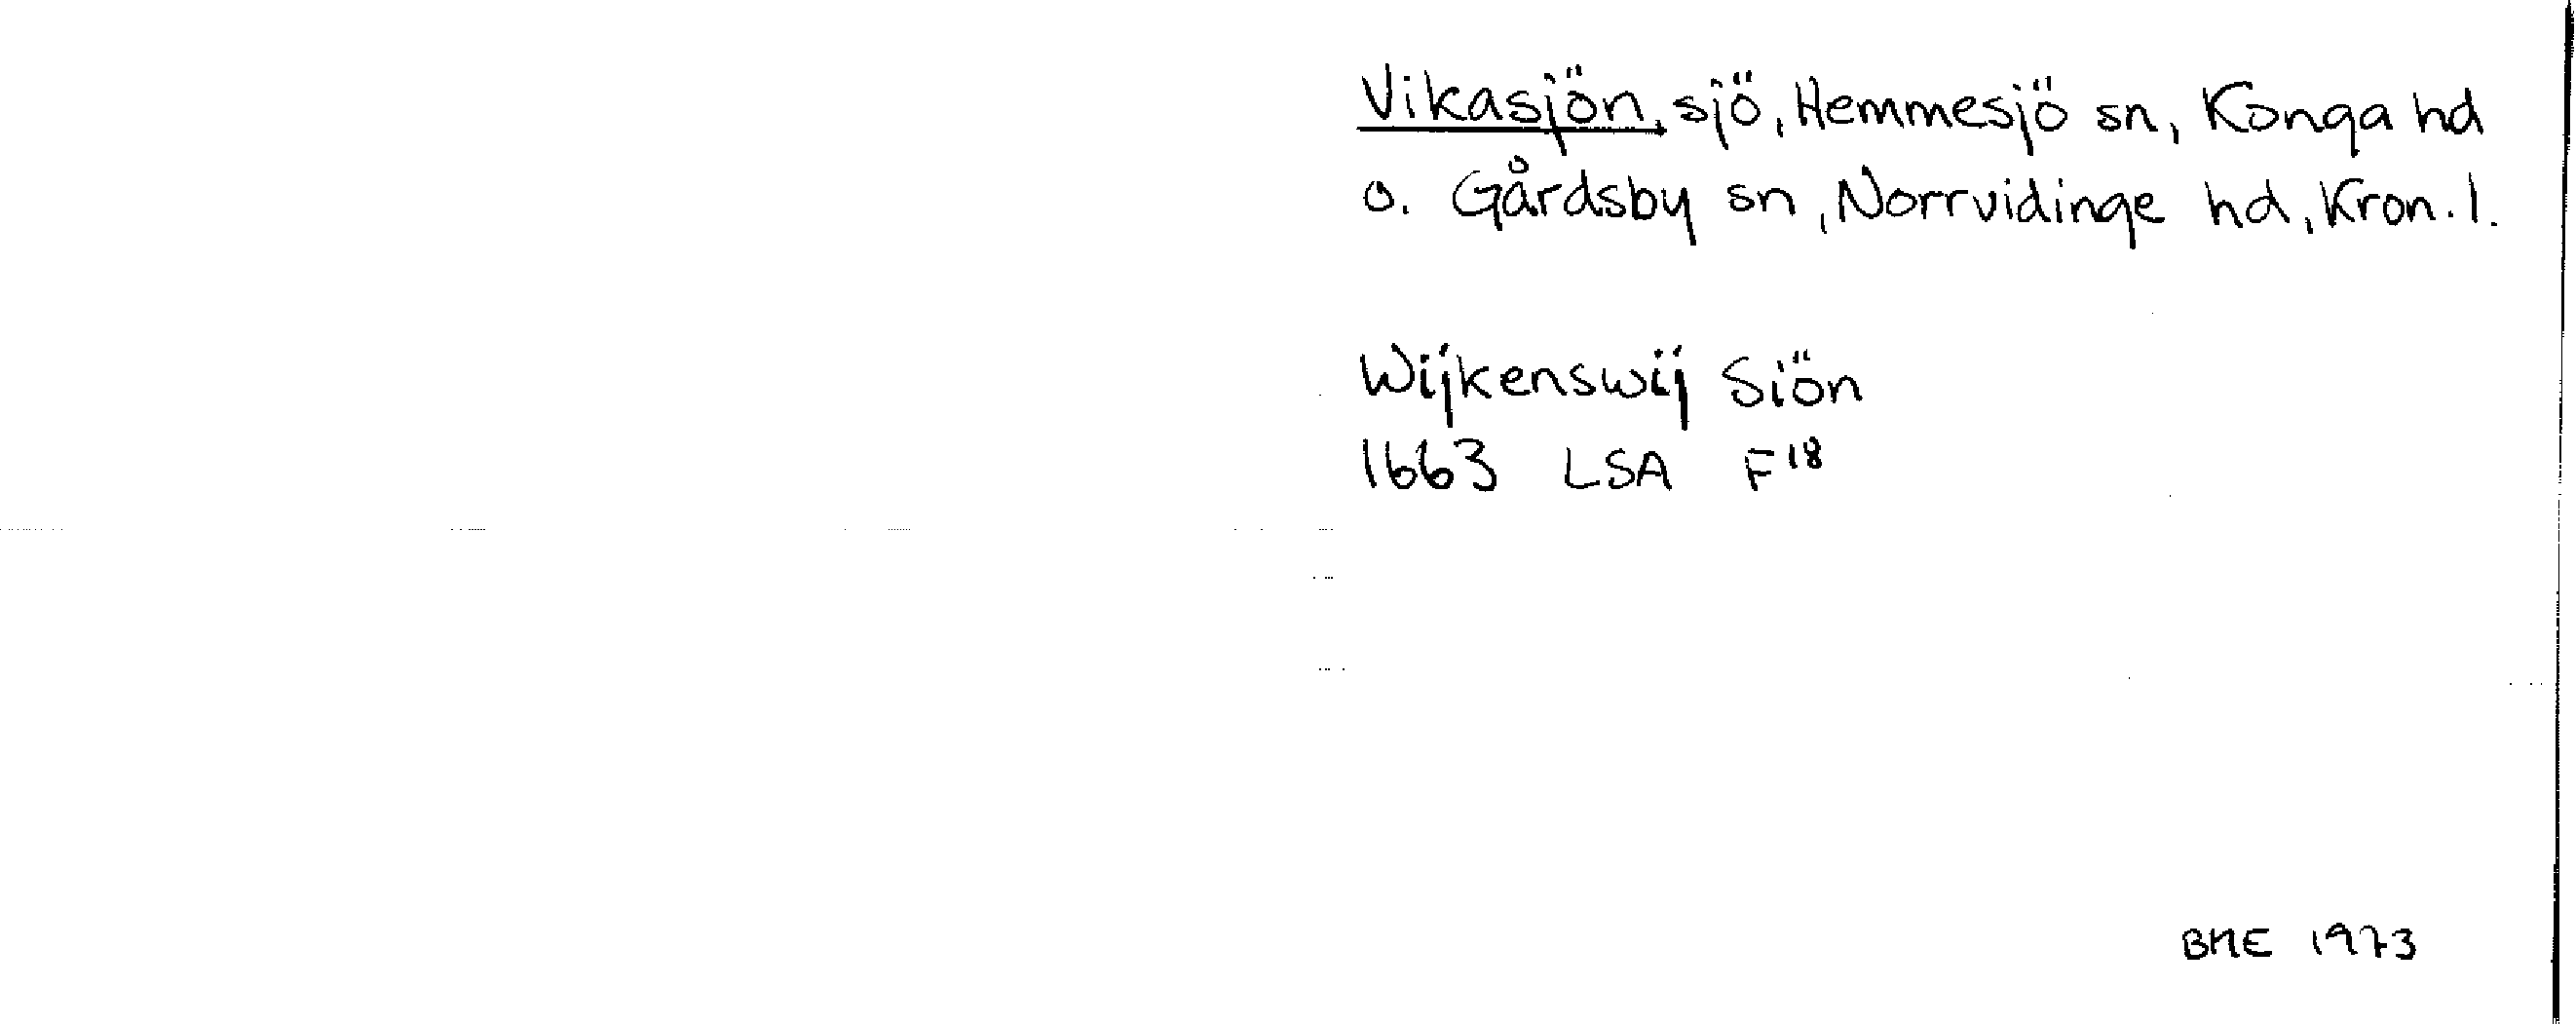 Vikasjön, sjö, Hemmesjö sn, Konga hd
o. Gårdsby sn, Norrvidinge hd, Kron. l.
Wijkenswij Siön
1663 LSA F18
BME 1973